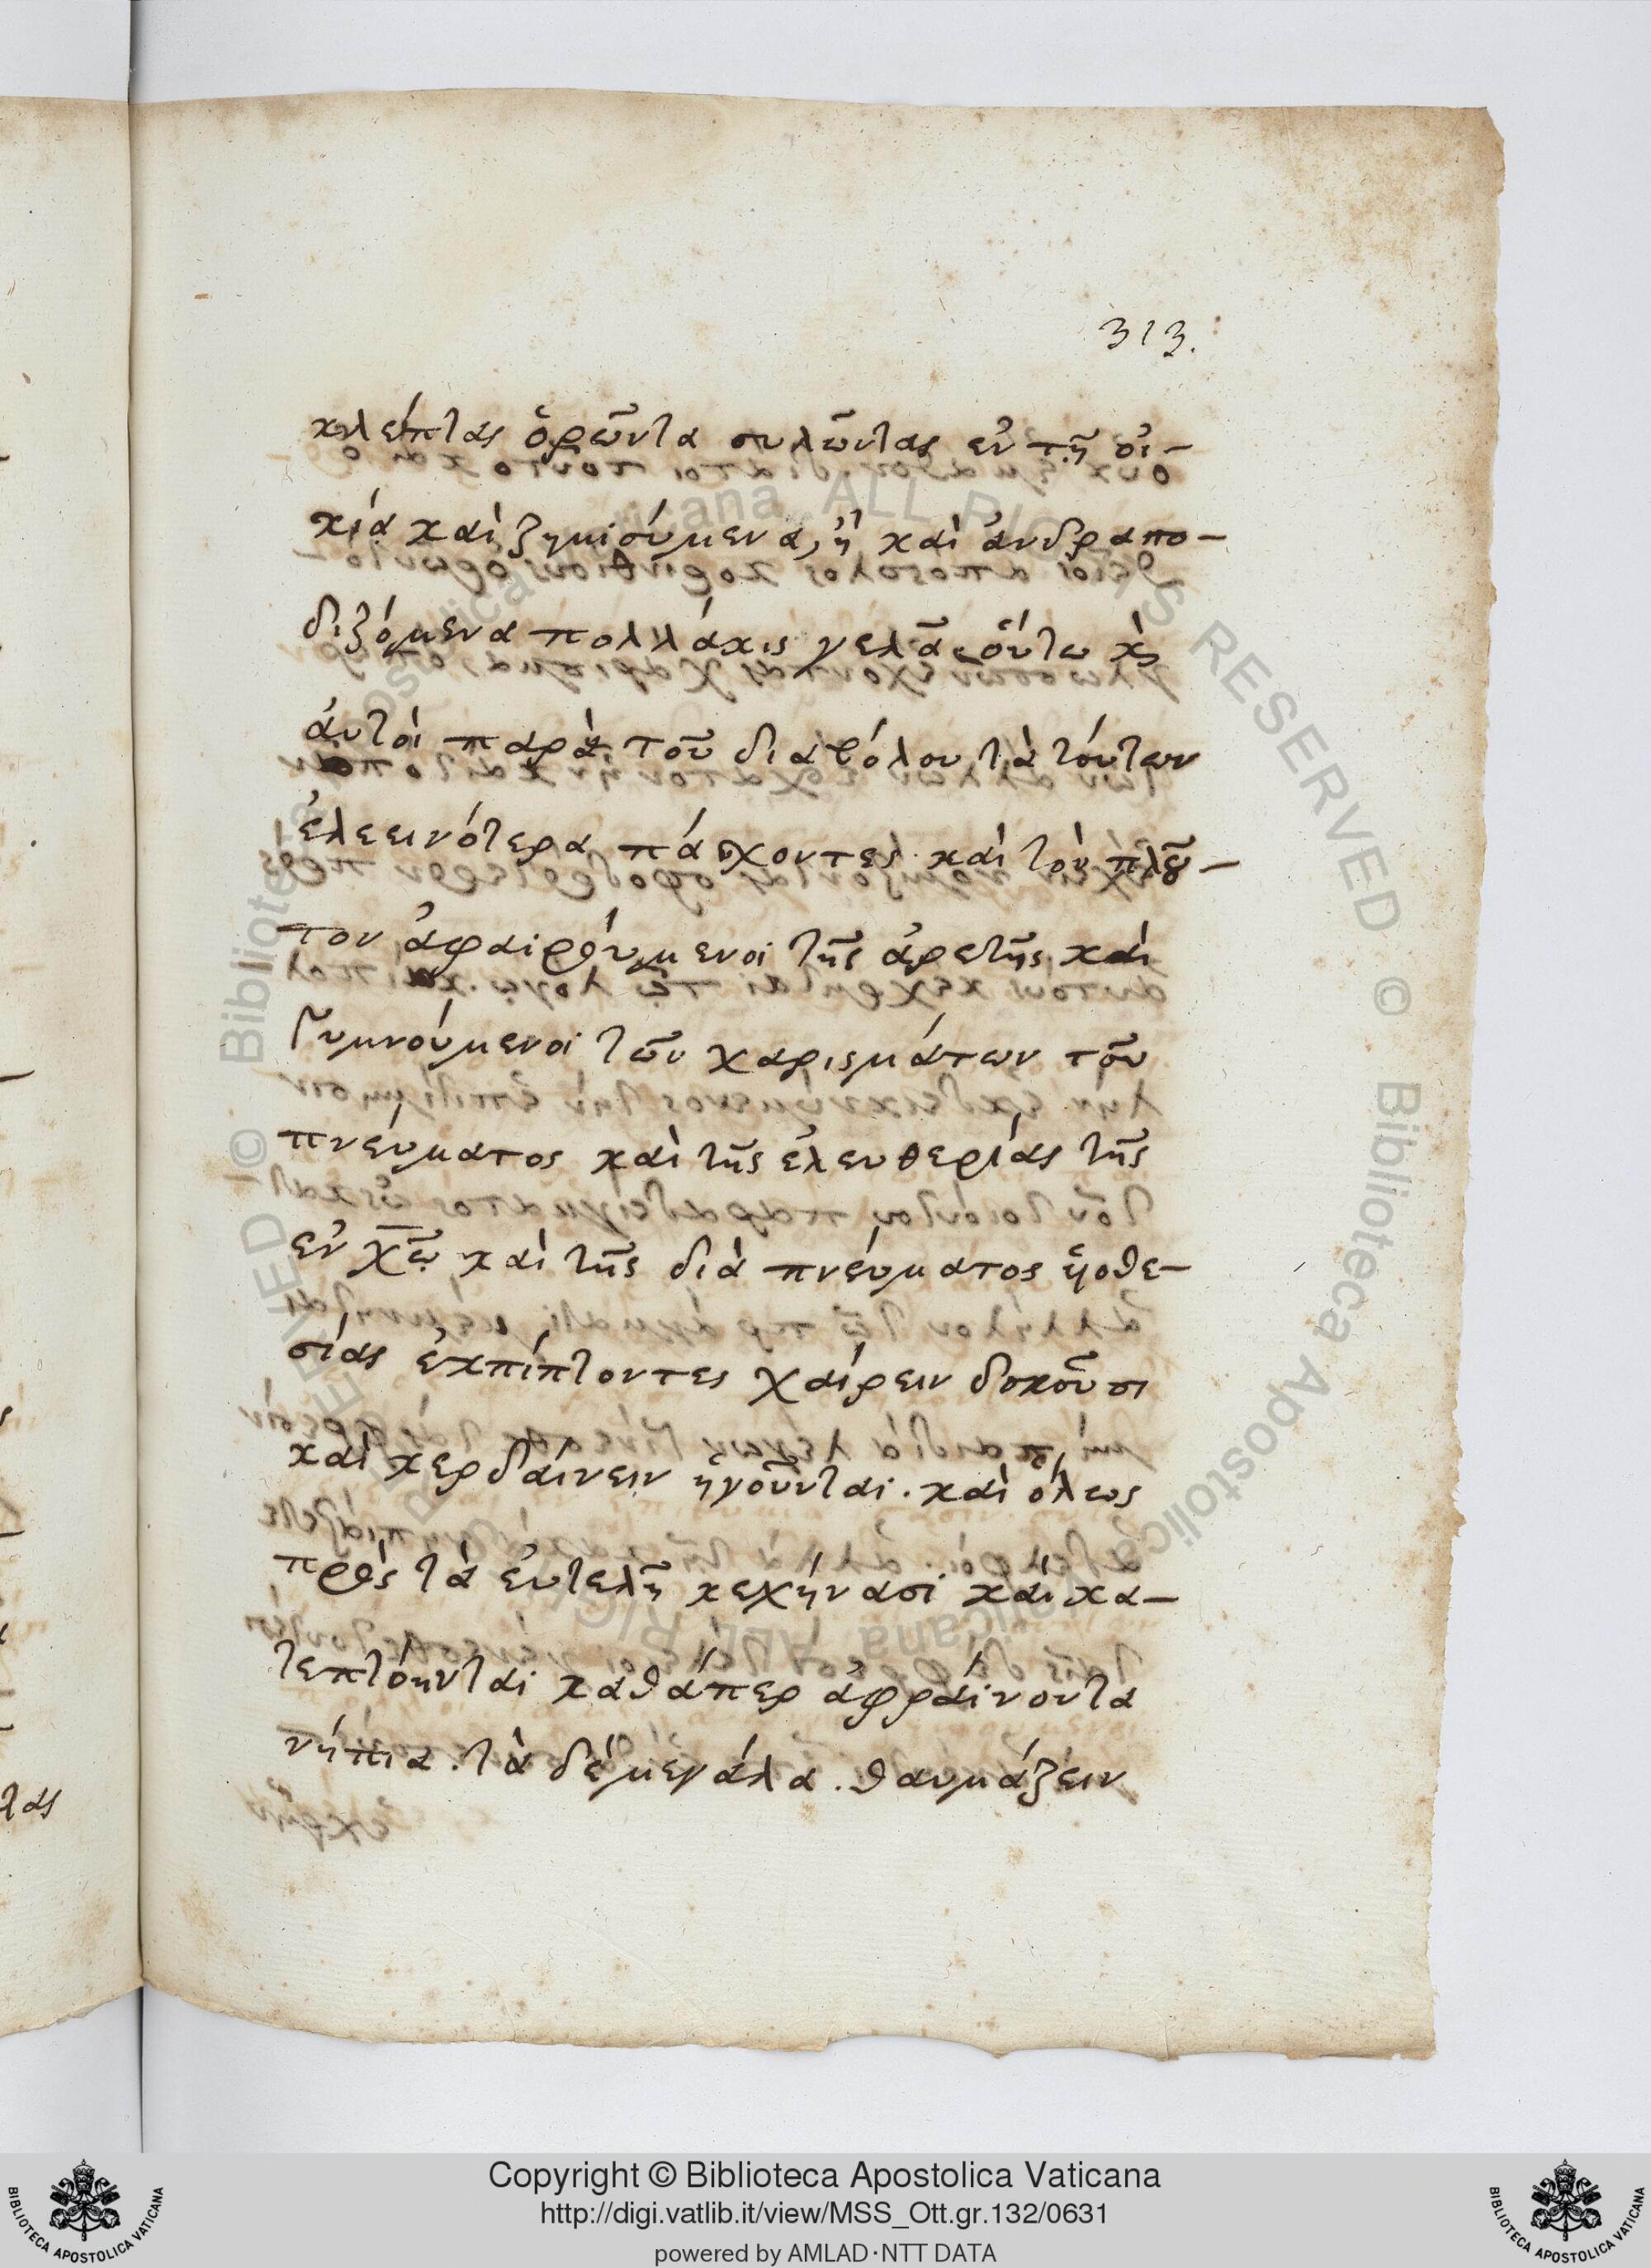 313.
κλέπτας ὁρῶντα συλῶντας ἐν τῇ οἰ-
κίᾳ καὶ ζημιούμενα, ἢ καὶ ἀνδραπο-
διζόμενα πολλάκις γελᾷ. οὕτω κ̀
ἀυτοὶ παρὰ τοῦ διαβόλου τὰ τούτων
ἐλεεινότερα πάσχοντες καὶ τὸν πλοῦ-
τον ἀφαιρούμενοι τῆς ἀρετῆς καὶ
γυμνούμενοι τῶν χαρισμάτων τοῦ
πνεύματος καὶ τῆς ἐλευθερίας τῆς
ἐν χῶ καὶ τῆς διὰ πνεύματος ὑοθε-
σίας ἐκπίπτοντες χαίρειν δοκοῦσι
καὶ κερδαίνειν ἡγοῦνται. καὶ ὅλως
πρὸς τὰ ἐυτελῆ κεχήνασι καὶ κα-
τεπτόηνται καθάπερ ἀφραίνοντα
νήπια. τὰ δὲ μεγάλα. θαυμάζειν
λας
Copyright © Biblioteca Apostolica Vaticana
http://digi.vatlib.it/view/MSS_Ott.gr.132/0631
powered by AMLAD·NTT DATA
BIBLIOTECA APOSTOLICA VATICANA
BIBLIOTECA APOSTOLICA VATICANA